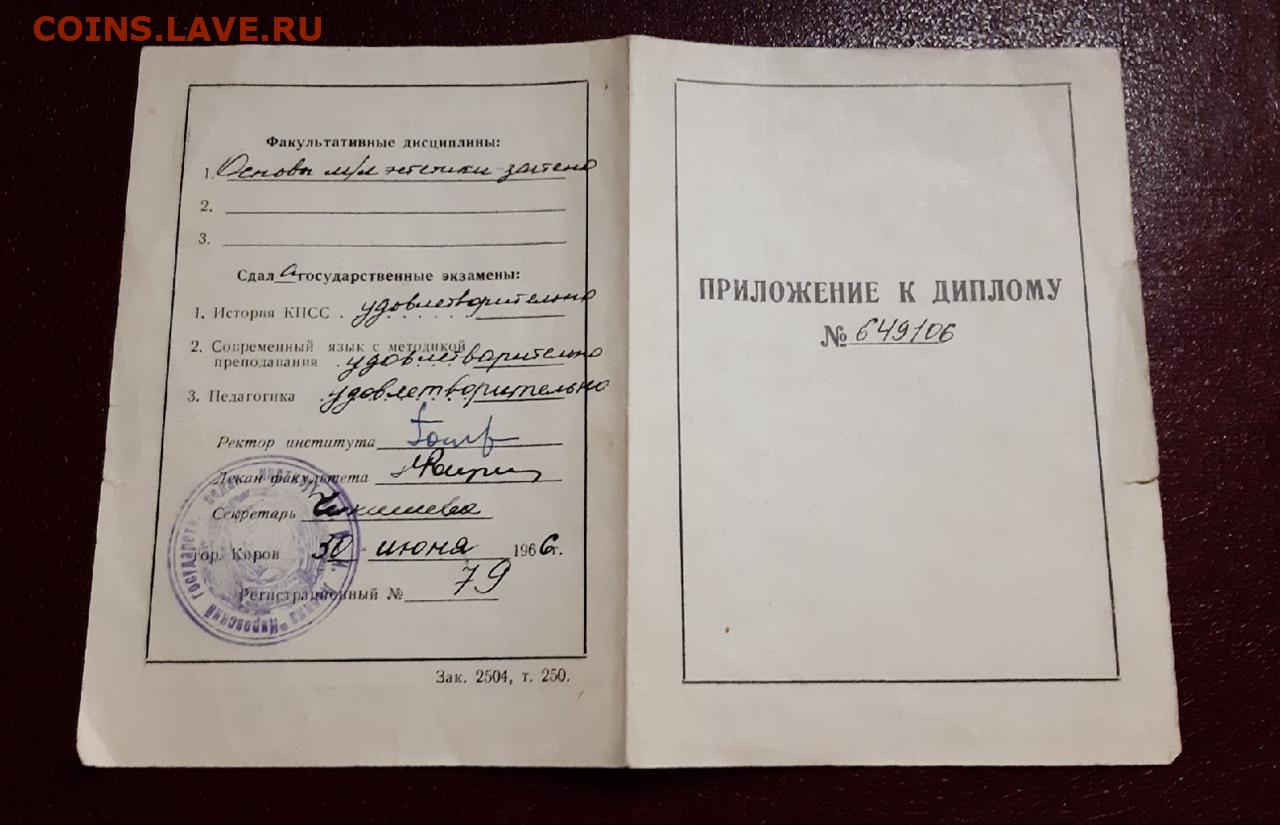 COINS.LAVE.RU
Факультативные дисциплины:
1. Основы м/л эстетики-зачтено
2.
3.
Сдала государственные экзамены:
1. История КПСС . удовлетворительно
2. Современный язык с методикой
преподавания . удовлетворительно
3. Педагогика . удовлетворительно
Ректор института
Декан факультета
Секретарь
гор. Киров 30 июня 1966г.
Регистрационный № 79
Зак. 2504, т. 250.
ПРИЛОЖЕНИЕ К ДИПЛОМУ
№ 649106